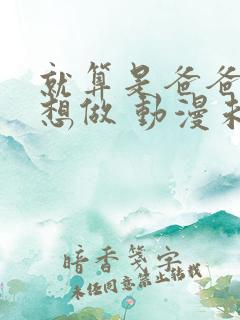 就算是爸爸
想做 動漫未
暗香箋字
未經同意禁止轉載